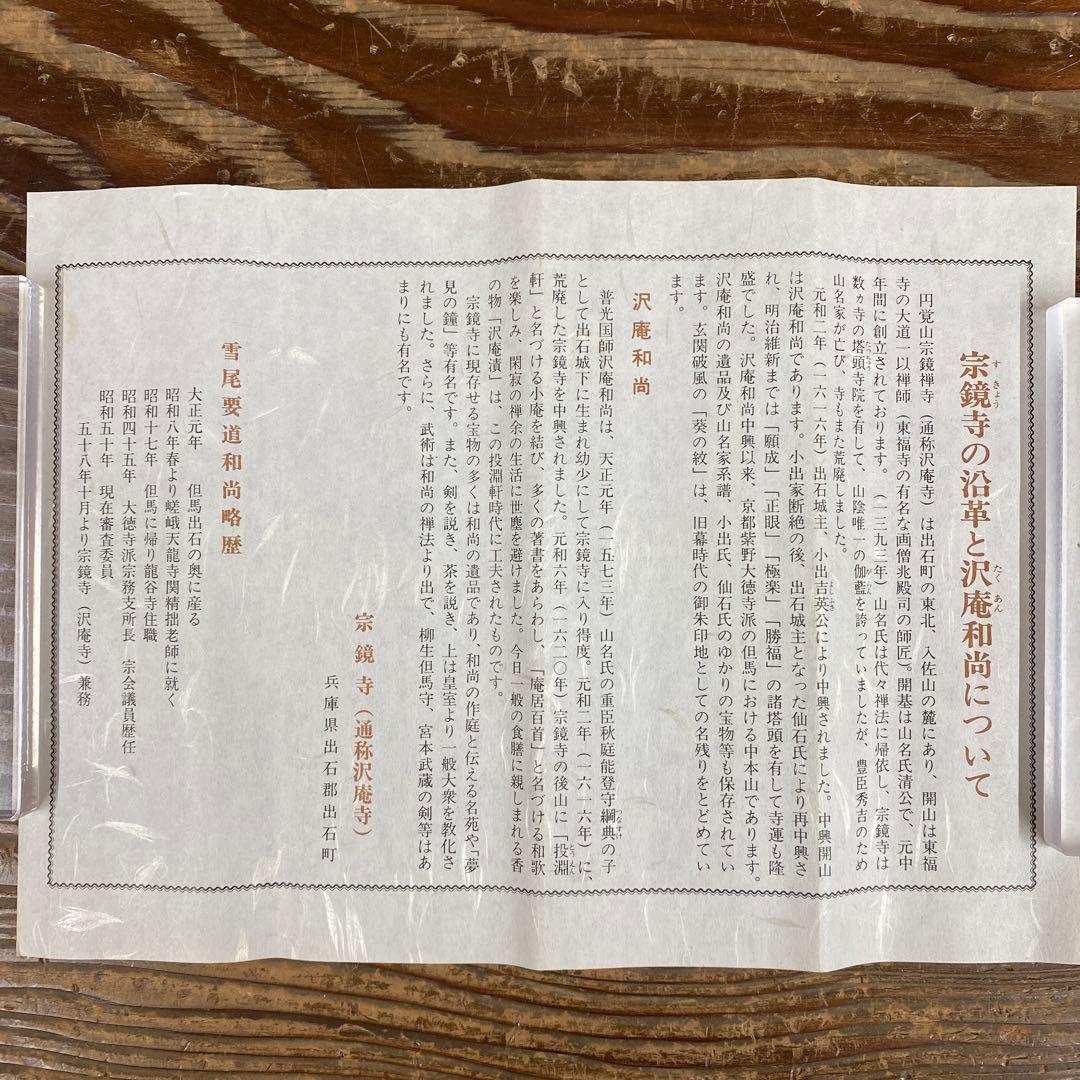 宗鏡寺の沿革と沢庵和尚について
すきょう
たくあん
円覚山宗鏡禅寺（通称沢庵寺）は出石町の東北、入佐山の麓にあり、開山は東福
寺の大道一以禅師（東福寺の有名な画僧兆殿司の師匠）。開基は山名氏清公で、元中
年間に創立されております。（一三九三年）山名氏は代々禅法に帰依し、宗鏡寺は
数ヵ寺の塔頭寺院を有して、山陰唯一の伽藍を誇っていましたが、豊臣秀吉のため
たっちゅう
がらん
山名家が亡び、寺もまた荒廃しました。
元和二年（一六一六年）出石城主、小出吉英公により中興されました。中興開山
よしふさ
は沢庵和尚であります。小出家断絶の後、出石城主となった仙石氏により再中興さ
れ、明治維新までは「願成」「正眼」「極楽」「勝福」の諸塔頭を有して寺運も隆
盛でした。沢庵和尚中興以来、京都紫野大徳寺派の但馬における中本山であります。
沢庵和尚の遺品及び山名家系譜、小出氏、仙石氏のゆかりの宝物等も保存されてい
ます。玄関破風の「葵の紋」は、旧幕時代の御朱印地としての名残りをとどめてい
ます。
沢庵和尚
普光国師沢庵和尚は、天正元年（一五七三年）山名氏の重臣秋庭能登守綱典の子
つなすけ
として出石城下に生まれ幼少にして宗鏡寺に入り得度。元和二年（一六一六年）に、
荒廃した宗鏡寺を中興されました。元和六年（一六二〇年）宗鏡寺の後山に「投淵
とうえん
軒」と名づける小庵を結び、多くの著書をあらわし、「庵居百首」と名づける和歌
を楽しみ、閑寂の禅余の生活に世塵を避けました。今日一般の食膳に親しまれる香
の物「沢庵漬」は、この投淵軒時代に工夫されたものです。
宗鏡寺に現存せる宝物の多くは和尚の遺品であり、和尚の作庭と伝える名苑や「夢
見の鐘」等有名です。また、剣を説き、茶を説き、上は皇室より一般大衆を教化さ
れました。さらに、武術は和尚の禅法より出で、柳生但馬守、宮本武蔵の剣等はあ
まりにも有名です。
宗鏡寺（通称沢庵寺）
兵庫県出石郡出石町
雪尾要道和尚略歴
大正元年　但馬出石の奥に産る
昭和八年春より嵯峨天龍寺関精拙老師に就く
昭和十七年　但馬に帰り龍谷寺住職
昭和四十五年　大徳寺派宗務支所長　宗会議員歴任
昭和五十年　現在審査委員
五十八年十月より宗鏡寺（沢庵寺）兼務